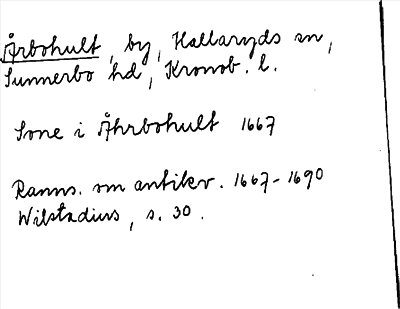 Årbohult, by, Hallaryds sn,
Sunnerbo hd, Kronob. l.
Sone i Åhrbohult 1667
Ranns. om antikv. 1667-1690
Wilstadius, s. 30.